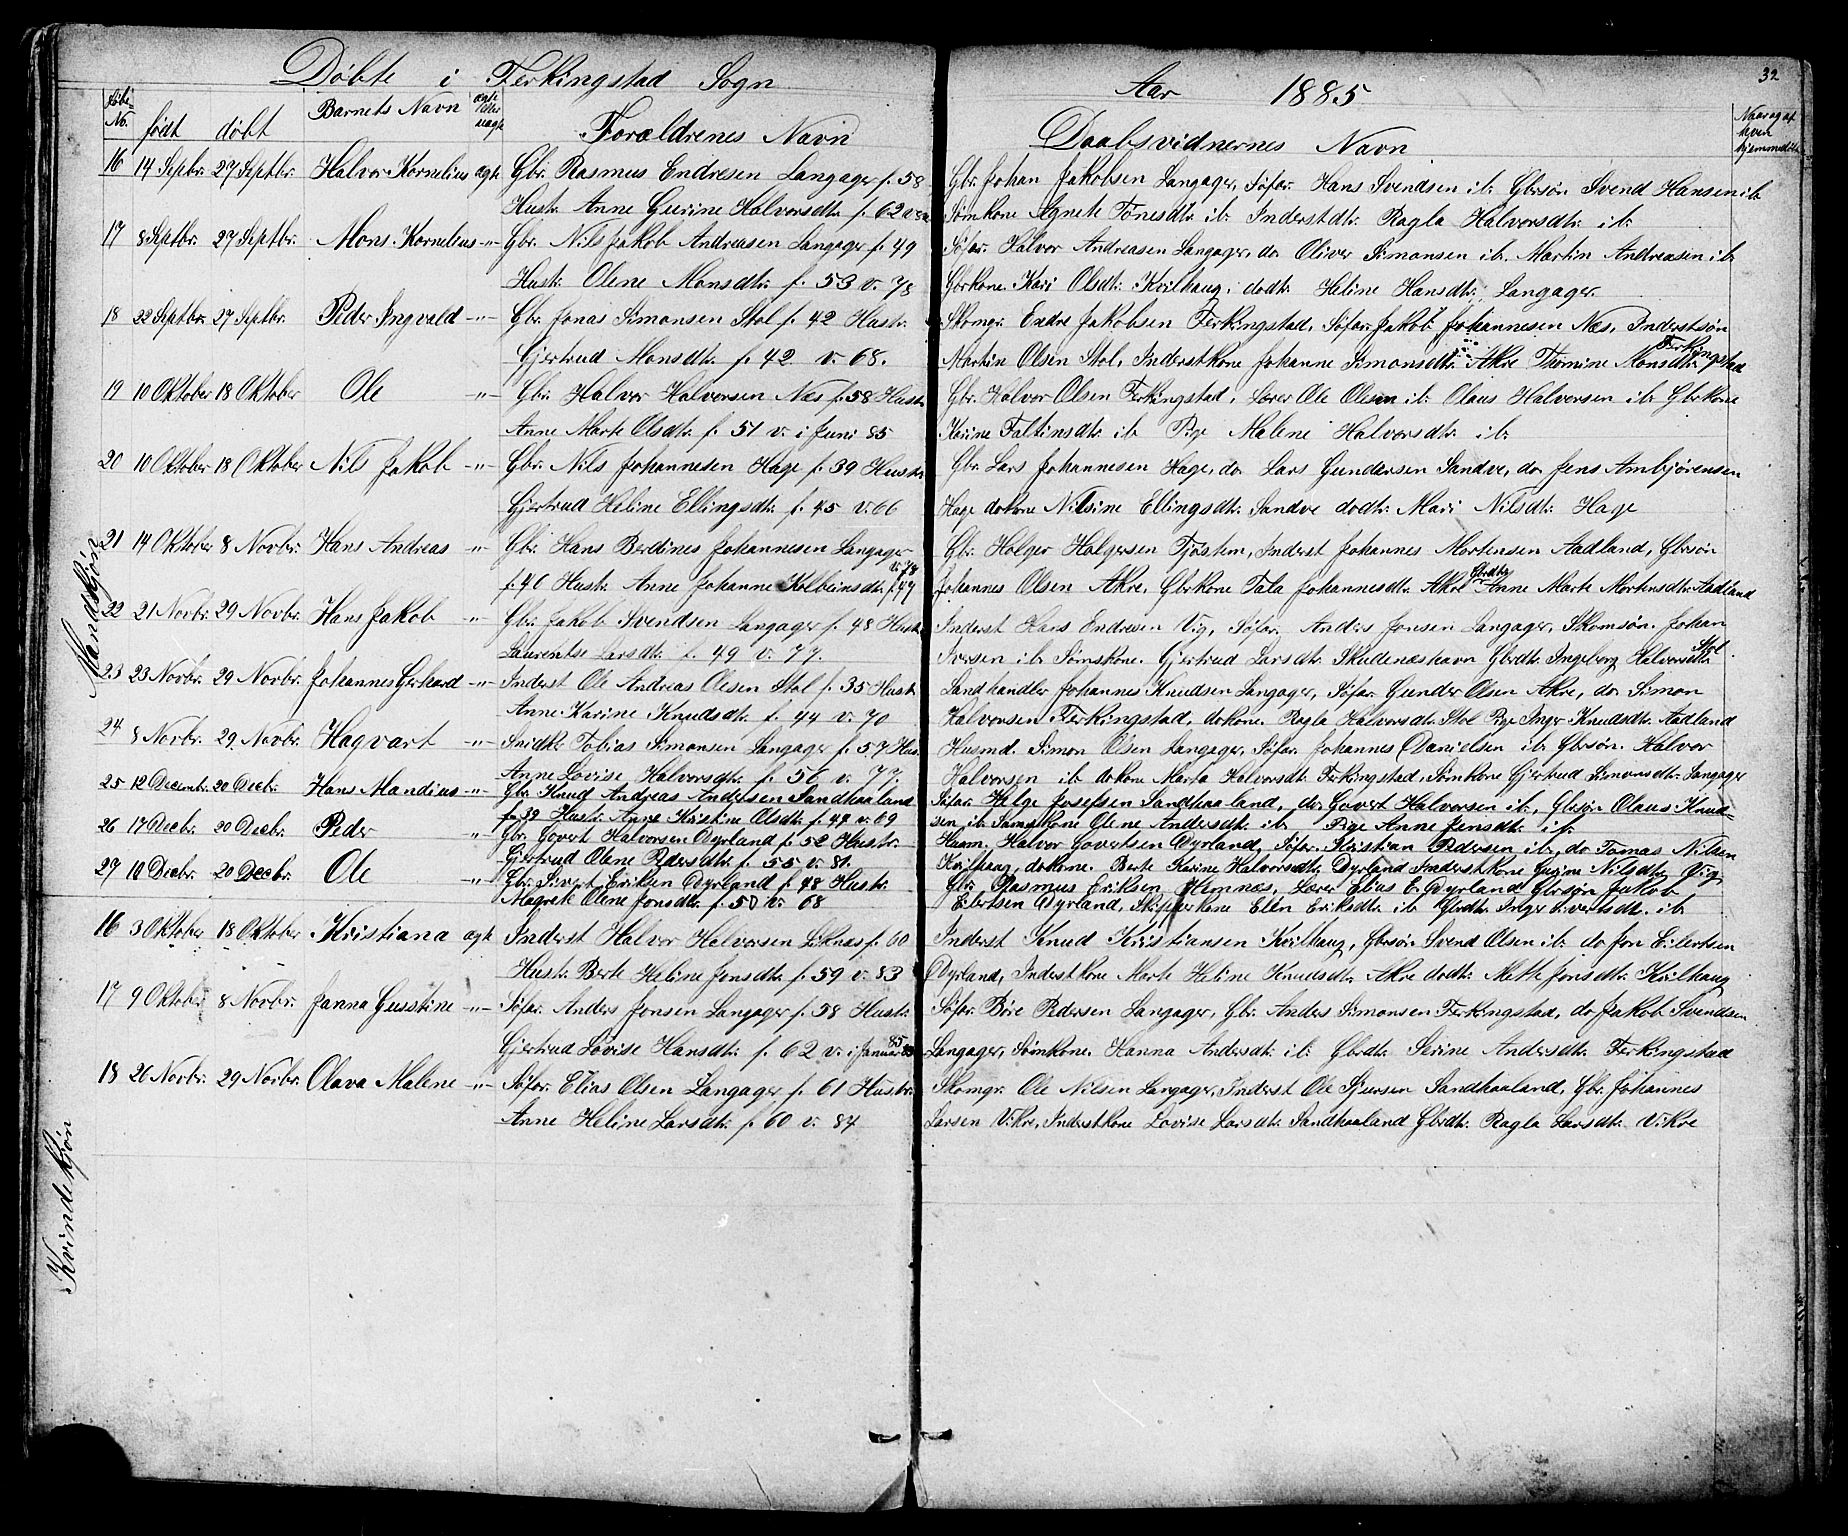 Döbte i Ferkingstad Sogn
Aar 1885
32
No. født døbt Barnets Navn Forældrenes Navn
Daabsvidnernes Navn
Mandkjön
16 14 Septbr. 27 Septbr. Halvor Kornelius ægte Gbr. Rasmus Endresen Langager f. 58
Hustr. Anne Gurine Halvorsdtr. f. 62
Gbr. Johan Jakobsen Langager, Søfar. Hans Svendsen ib. Gbrsøn Svend Hansen ib
Sømkone Agnete Tønesdtr. ib. Inderstdtr. Ragla Halvorsdtr. ib.
17 8 Septbr. 27 Septbr. Mons Kornelius -"- Gbr. Nils Jakob Andreasen Langager f. 49
Hustr. Olene Monsdtr. f. 53 v. 78
Søfar. Halvor Andreasen Langager, do Oliver Simonsen ib. Martin Andreasen ib
Gbrkone. Kari Olsdtr. Kvilhaug, dodtr. Heline Hansdtr. Langager.
18 22 Septbr. 27 Septbr. Peder Ingvald -"- Gbr. Jonas Simonsen Stol f. 42 Hustr.
Gjertrud Monsdtr. f. 42 v. 68.
Skomgr. Endre Jakobsen Ferkingstad, Søfar. Jakob Johannesen Næs, Inderstsøn
Martin Olsen Stol, Inderstkone Johanne Simonsdtr. Akre Thomine Monsdtr. Ferkingstad
19 10 Oktober 18 Oktober Ole -"- Gbr. Halvor Halvorsen Næs f. 58 Hustr.
Anne Marte Olsdtr. f. 51 v. i Juni 85
Gbr. Halvor Olsen Ferkingstad, Lærer Ole Olesen ib. Olaus Halvorsen ib. Gbrkone
Karine Faltinsdtr. ib Pige Malene Halvorsdtr. ib.
20 10 Oktober 18 Oktober Nils Jakob -"- Gbr. Nils Johannesen Hage f. 39 Hustr.
Gjertrud Heline Ellingsdtr. f. 45 v. 66
Gbr. Lars Johannesen Hage, do Lars Gundersen Sandve, do Jens Ambjørensen
Hage dokone Nilsine Ellingsdtr. Sandve dodtr. Mari Nilsdtr. Hage
21 14 Oktober 8 Novbr. Hans Andreas -"- Gbr. Hans Berdines Johannesen Langager
f. 40 Hustr. Anne Johanne Kolbeinsdtr. f. 47 v. 78
Gbr. Holger Holgersen Tjøstem, Inderst Johannes Mortensen Aadland, Gbrsøn
Johannes Olsen Akre, Gbrkone Tala Johannesdtr. Akre Gbrdtr. Anne Marte Mortensdtr. Aadland
22 21 Novbr. 29 Novbr. Hans Jakob -"- Gbr. Jakob Svendsen Langager f. 48 Hustr.
Laurentse Larsdtr. f. 49 v. 77.
Inderst Hans Endresen Vig, Søfar. Anders Jonsen Langager, Skomsøn. Johan
Iversen ib. Sømskone. Gjertrud Larsdtr. Skudeneshavn Gbrdtr. Ingeborg Halvorsdtr. Stol.
23 23 Novbr. 29 Novbr. Johannes Gerhard -"- Inderst Ole Andreas Olesen Stol f. 35 Hustr.
Anne Karine Knudsdtr. f. 44 v. 70
Landhandler Johannes Knudsen Langager, Søfar. Gunder Olsen Akre, do Simon
Halvorsen Ferkingstad, dokone. Ragla Halvorsdtr. Stol Pige Inger Knudsdtr. Aadland
24 8 Novbr. 29 Novbr. Hagvart -"- Snidk. Tobias Simonsen Langager f. 57 Hus.
Anne Lovise Halvorsdtr. f. 56 v. 77.
Husmd. Simon Olsen Langager, Søfar. Johannes Danielsen ib. Gbrsøn. Halvor
Halvorsen ib dokone Marta Halvorsdtr. Ferkingstad, Sømkone Gjertrud Simonsdtr. Langager
25 12 Decemb. 20 Decbr. Hans Mandius -"- Gbr. Knud Andreas Andersen Sandhaaland
f. 39 Hustr. Anne Kristine Olsdtr. f. 47 v. 69
Søfar. Helge Josefsen Sandhaaland, do Govert Halvorsen ib, Gbrsøn Olaus Knud-
sen ib. Sømskone Olene Andersdtr. ib Pige Anne Jensdtr. ib.
26 17 Decbr. 20 Decbr. Peder -"- Gbr. Govert Halvorsen Dyrland f. 52 Hustr.
Gjertrud Olene Pedersdtr. f. 55 v. 81.
Husm. Halvor Govertsen Dyrland, Søfar. Kristian Pedersen ib, do Tomas Nilsen
Kvilhaug, dokone. Berte Karine Halvorsdtr. Dyrland Inderstkone Nilsdtr.
27 10 Decbr. 20 Decbr. Ole -"- Gbr. Sivert Eriksen Dyrland f. 48 Hustr.
Magrete Olene Jonsdtr. f. 50 v. 68
Gbr. Rasmus Eriksen Hemnæs, Lærer Elias E. Dyrland Gbrsøn Jakob
Eilertsen Dyrland, Skipperkone Elen Eriksdtr. ib Gbrdtr. Inger Sivertsdt. ib
Kvindekjøn
16 3 Oktober 18 Oktober Kristiana ægte Inderst Halvor Halvorsen Liknæs f. 60
Hustr. Berte Heline Jonsdtr. f. 59 v. 83
Inderst Knud Kristiansen Kvilhaug, Gbrsøn Svend Olsen ib. do Jon Eilertsen
Dyrland, Inderstkone Marte Heline Knudsdtr. Akre dodtr. Mette Jonsdtr. Kvilhaug
17 9 Oktober 8 Novbr. Janna Gusstine -"- Søfar. Anders Jonsen Langager f. 58 Hustr.
Gjertrud Lovise Hansdtr. f. 62 v. i Januar 85
Søfar. Børe Pedersen Langager, Gbr. Anders Simonsen Ferkingstad, do Jakob Svendsen
Langager, Sømkone. Hanna Andersdtr. ib. Gbrdtr. Serine Andersdtr. Ferkingstad
18 26 Novbr. 29 Novbr. Olava Malene -"- Søfar. Elias Olsen Langager f. 61 Hustr.
Anne Heline Larsdtr. f. 60 v. 84
Skomgr. Ole Nilsen Langager, Inderst Ole Sjursen Sandhaaland, Gbr. Johannes
Larsen Vikre, Inderstkone Lovise Larsdtr. Sandhaaland Gbrdtr. Ragla Larsdtr. Vikre